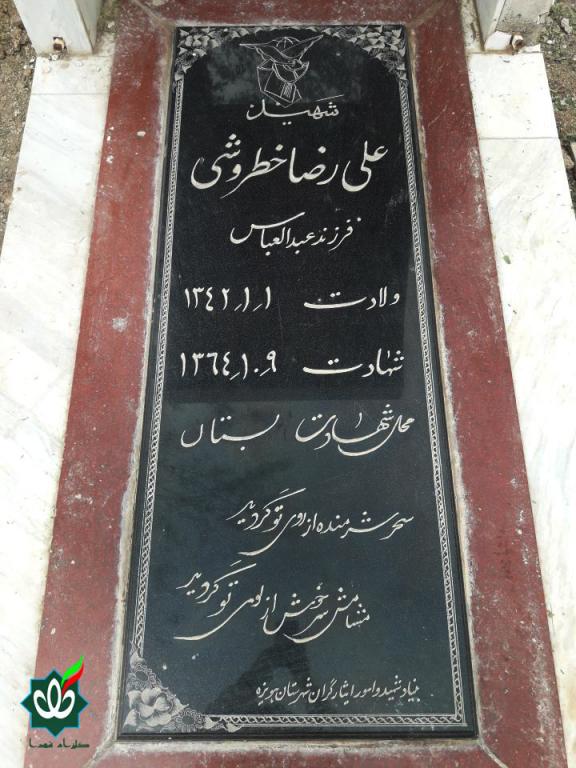 شهید
علی رضا خطروشی
فرزند عبدالعباس
ولادت ۱۳۴۲٫۱٫۱
شهادت ۱۳۶۴٫۱۰٫۹
محل شهادت بستان
سحر شرمنده از روی تو گردید
مشامش سرخوش از بوی تو گردید
بنیاد شهید و امور ایثارگران شهرستان هویزه
گلزار شهدا